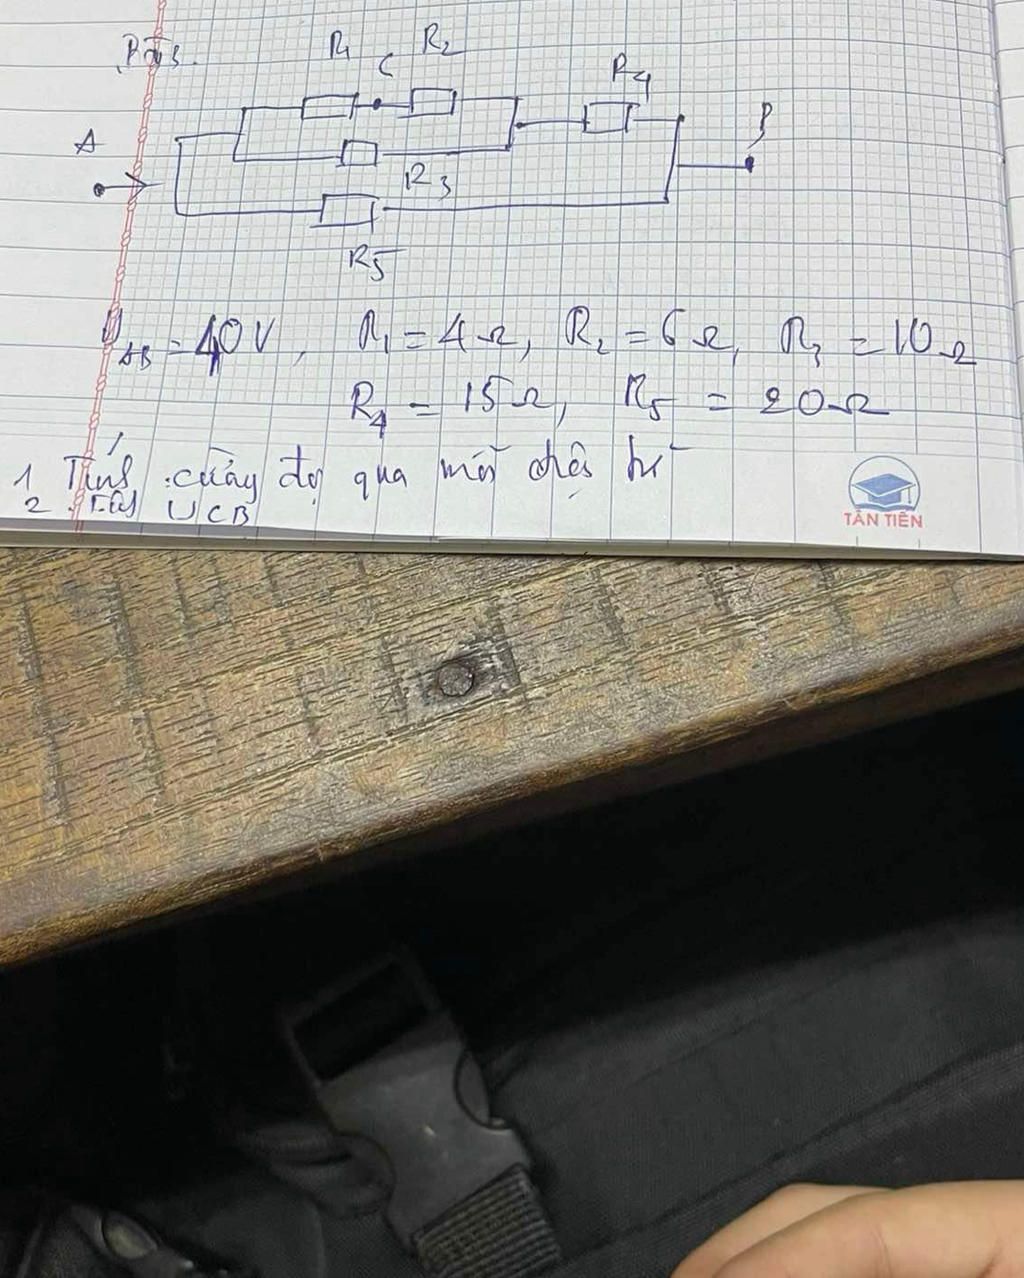 Bài 3.
R1 C R2
R4
A
B
R3
R5
UAB = 40V, R1 = 4Ω, R2 = 6Ω, R3 = 10Ω
R4 = 15Ω, R5 = 20Ω
1 Tính cường độ qua mỗi điện trở
2. UCB
TÂN TIẾN